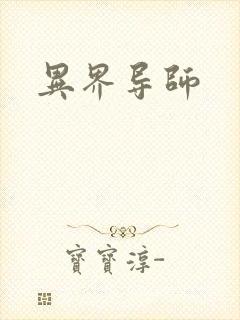 異界导師
寶寶淳-